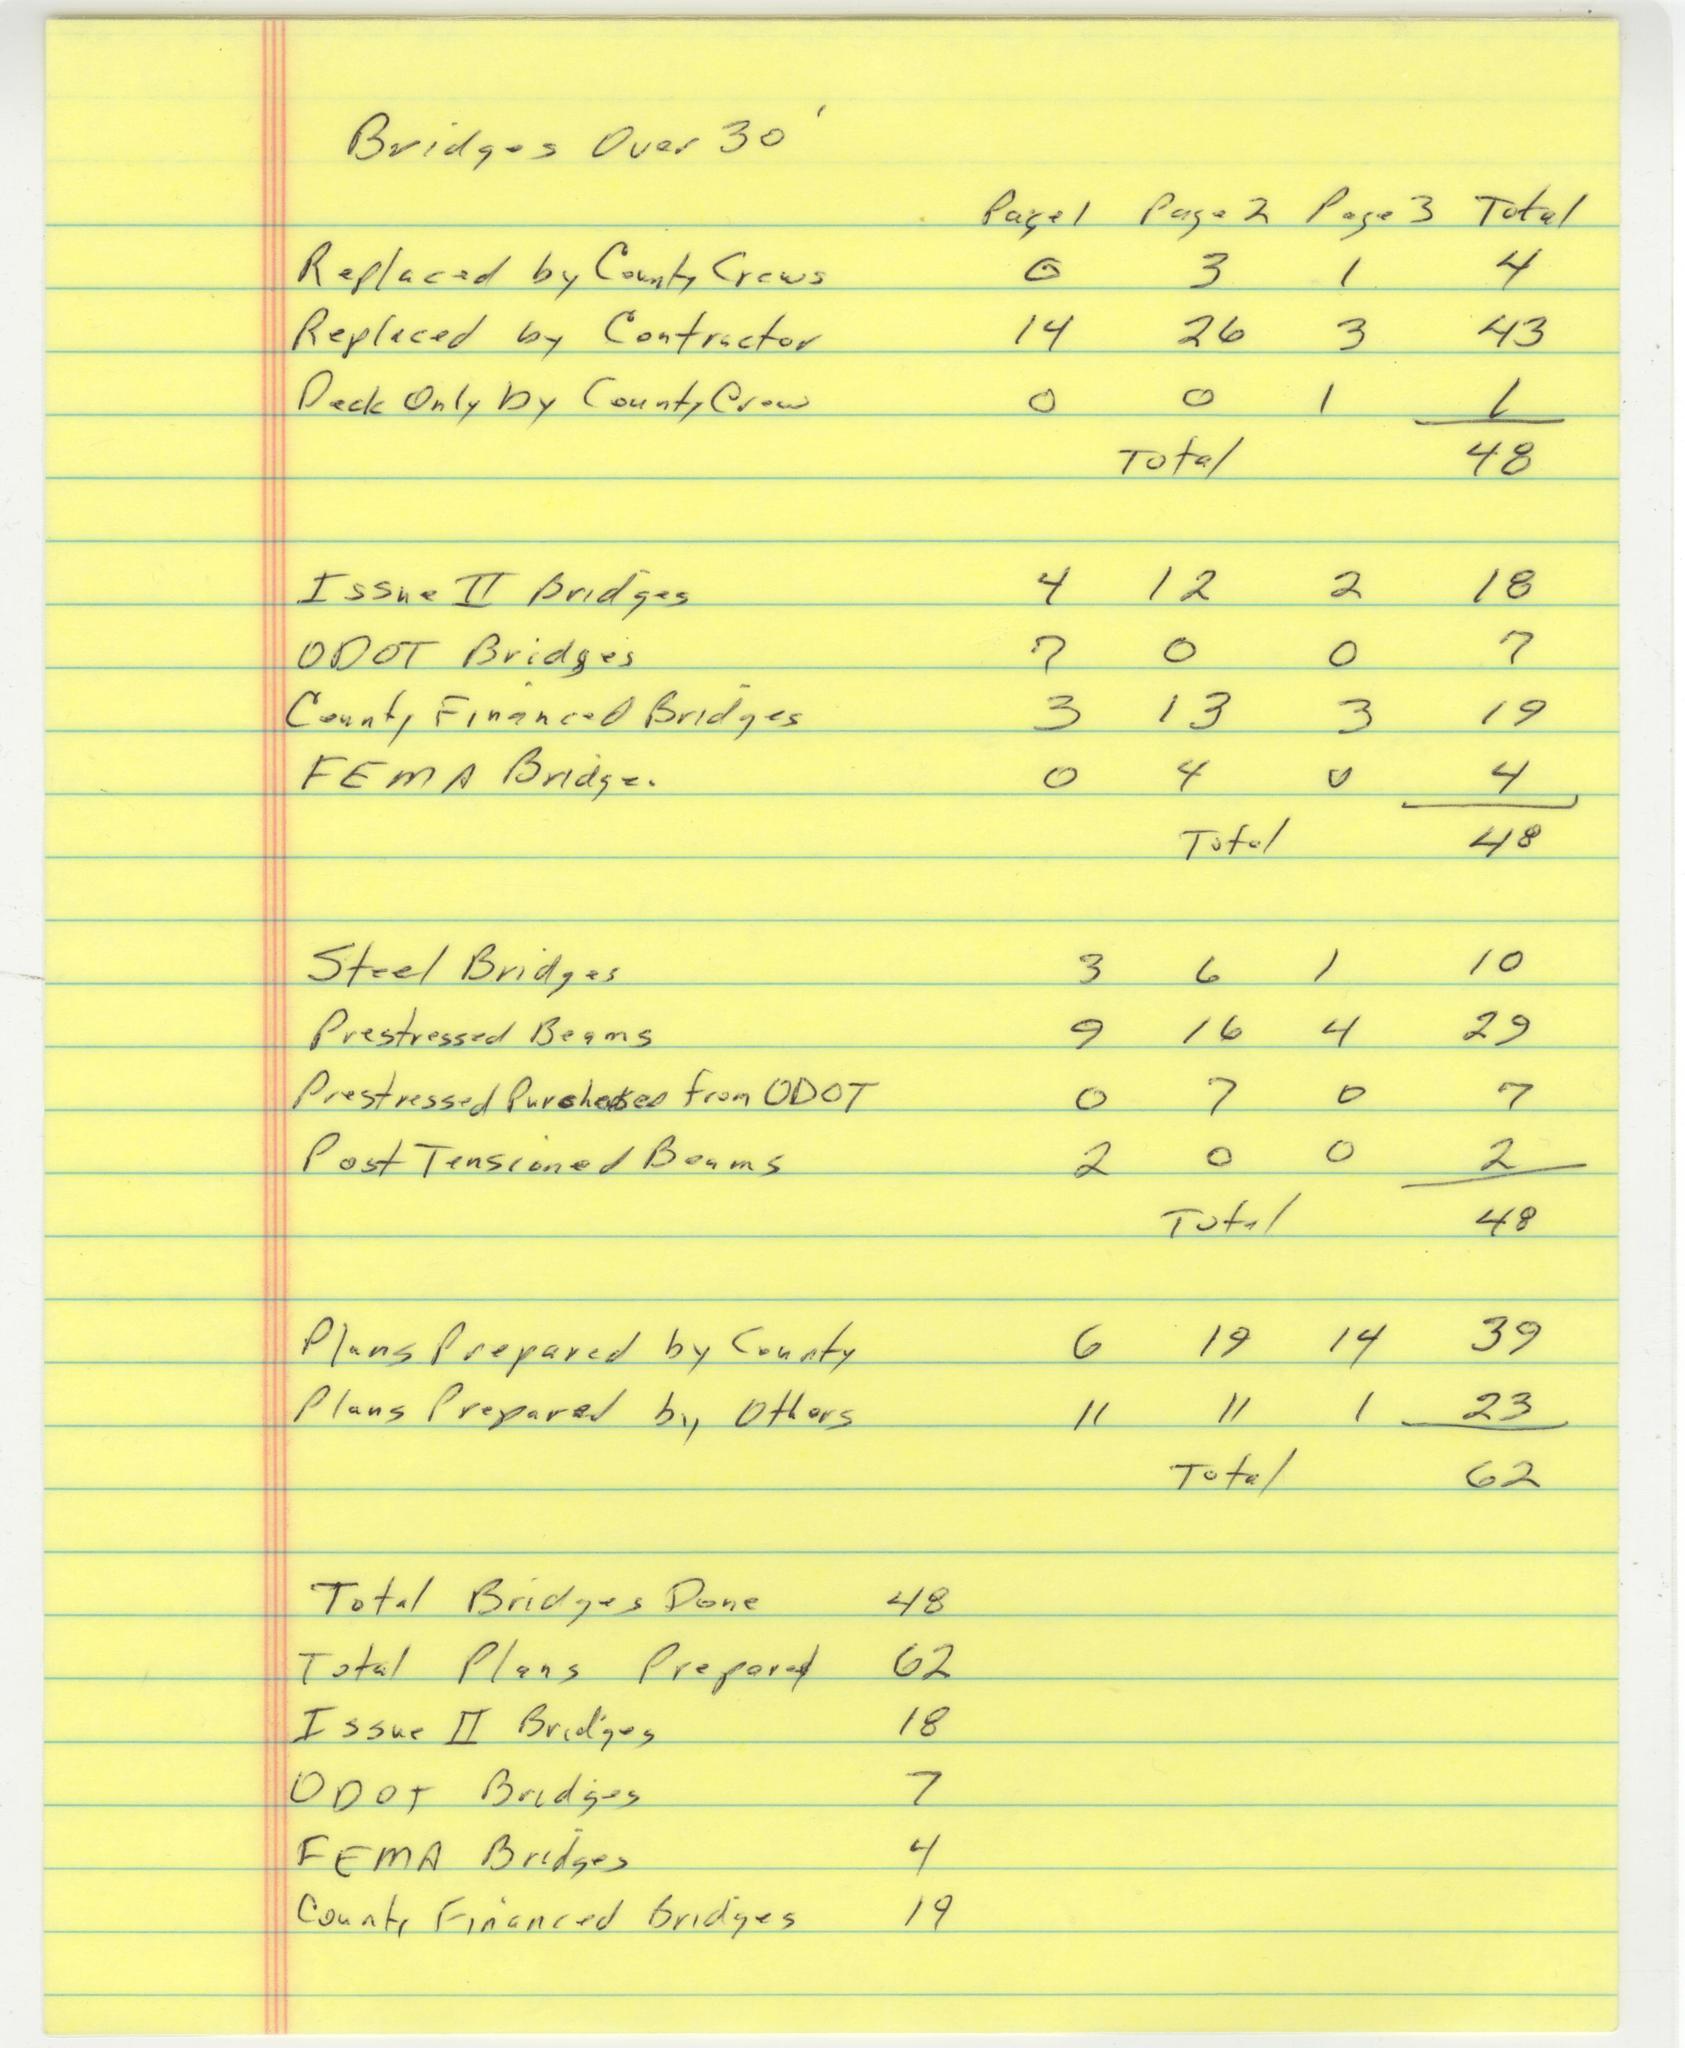 Bridges Over 30'
Page 1 Page 2 Page 3 Total
Replaced by County Crews 0 3 1 4
Replaced by Contractor 14 26 3 43
Deck Only by County Crew 0 0 1 1
Total 48
Issue II Bridges 4 12 2 18
ODOT Bridges 7 0 0 7
County Financed Bridges 3 13 3 19
FEMA Bridges 0 4 0 4
Total 48
Steel Bridges 3 6 1 10
Prestressed Beams 9 16 4 29
Prestressed Purchased from ODOT 0 7 0 7
Post Tensioned Beams 2 0 0 2
Total 48
Plans Prepared by County 6 19 14 39
Plans Prepared by Others 11 11 1 23
Total 62
Total Bridges Done 48
Total Plans Prepared 62
Issue II Bridges 18
ODOT Bridges 7
FEMA Bridges 4
County Financed Bridges 19